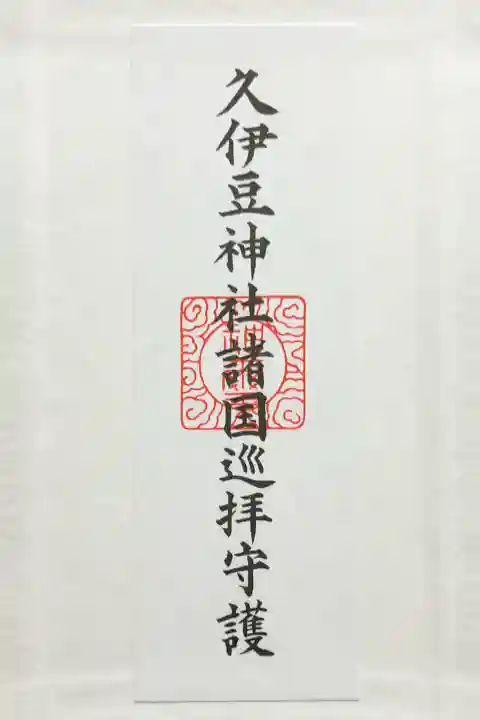 久伊豆神社諸国巡拝守護